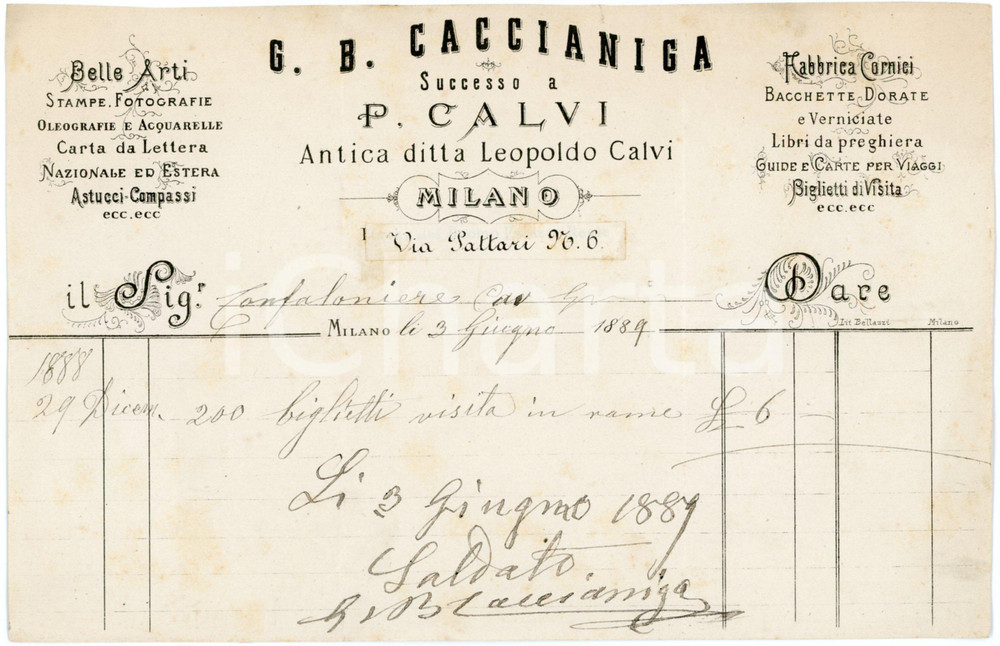 G. B. CACCIANIGA
Successo a
P. CALVI
Antica ditta Leopoldo Calvi
MILANO
1 Via Pattari N. 6.
Belle Arti
STAMPE, FOTOGRAFIE
OLEOGRAFIE E ACQUARELLE
Carta da Lettera
NAZIONALE ED ESTERA
Astucci-Compassi
ecc. ecc
Fabbrica Cornici
BACCHETTE DORATE
e Verniciate
Libri da preghiera
GUIDE E CARTE PER VIAGGI
Biglietti di Visita
ecc. ecc
il Sigr. Confaloniere Cav Dare
MILANO li 3 Giugno 1889
Lit Bellazzi Milano
1888
29 Dicem. 200 biglietti visita in rame £ 6 —
Li 3 Giugno 1889
Saldato
G B Caccianiga
iCharta